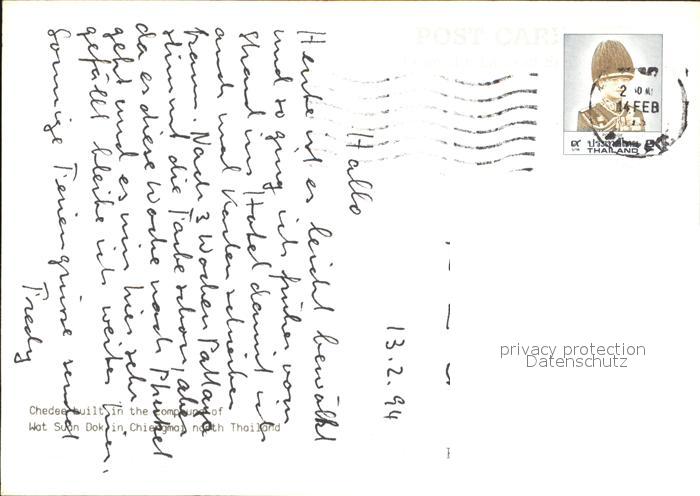 POST CARD
2
14 FEB
๙ ประเทศไทย ๙
THAILAND
13.2.94
Hallo
Heute ist es leicht bewölkt
und so ging ich früher vom
Strand ins Hotel damit ich
auch mal Karten schreiben
kann. Nach 3 Wochen Pattaya
stimmt die Farbe schon, aber
da es diese Woche nach Phuket
geht und es mir hier sehr
gefällt bleibe ich weiter hier.
Sonnige Feriengrüsse sendet
Fredy
privacy protection
Datenschutz
Chedee built in the compound of
Wat Suan Dok in Chiengmai north Thailand